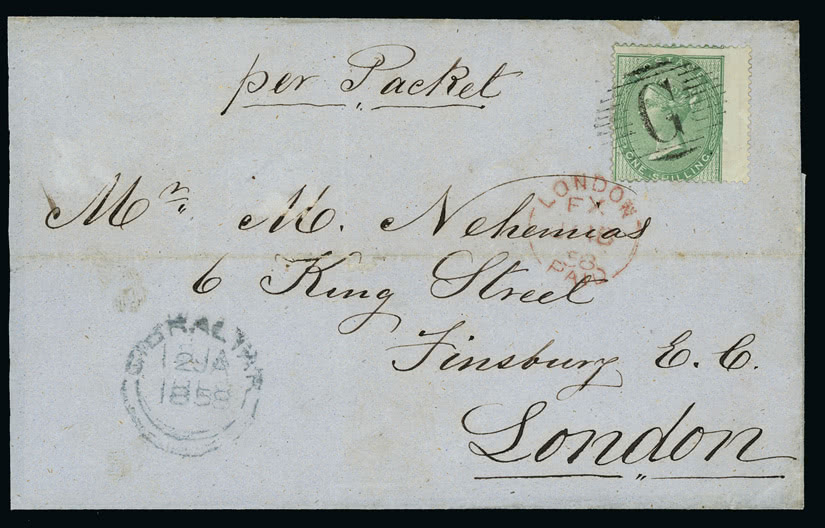 per Packet
G
ONE SHILLING
LONDON
FX
58
PAID
Mr. M. Nehemias
6 King Street
Finsbury E. C.
London
GIBRALTAR
JA
1858